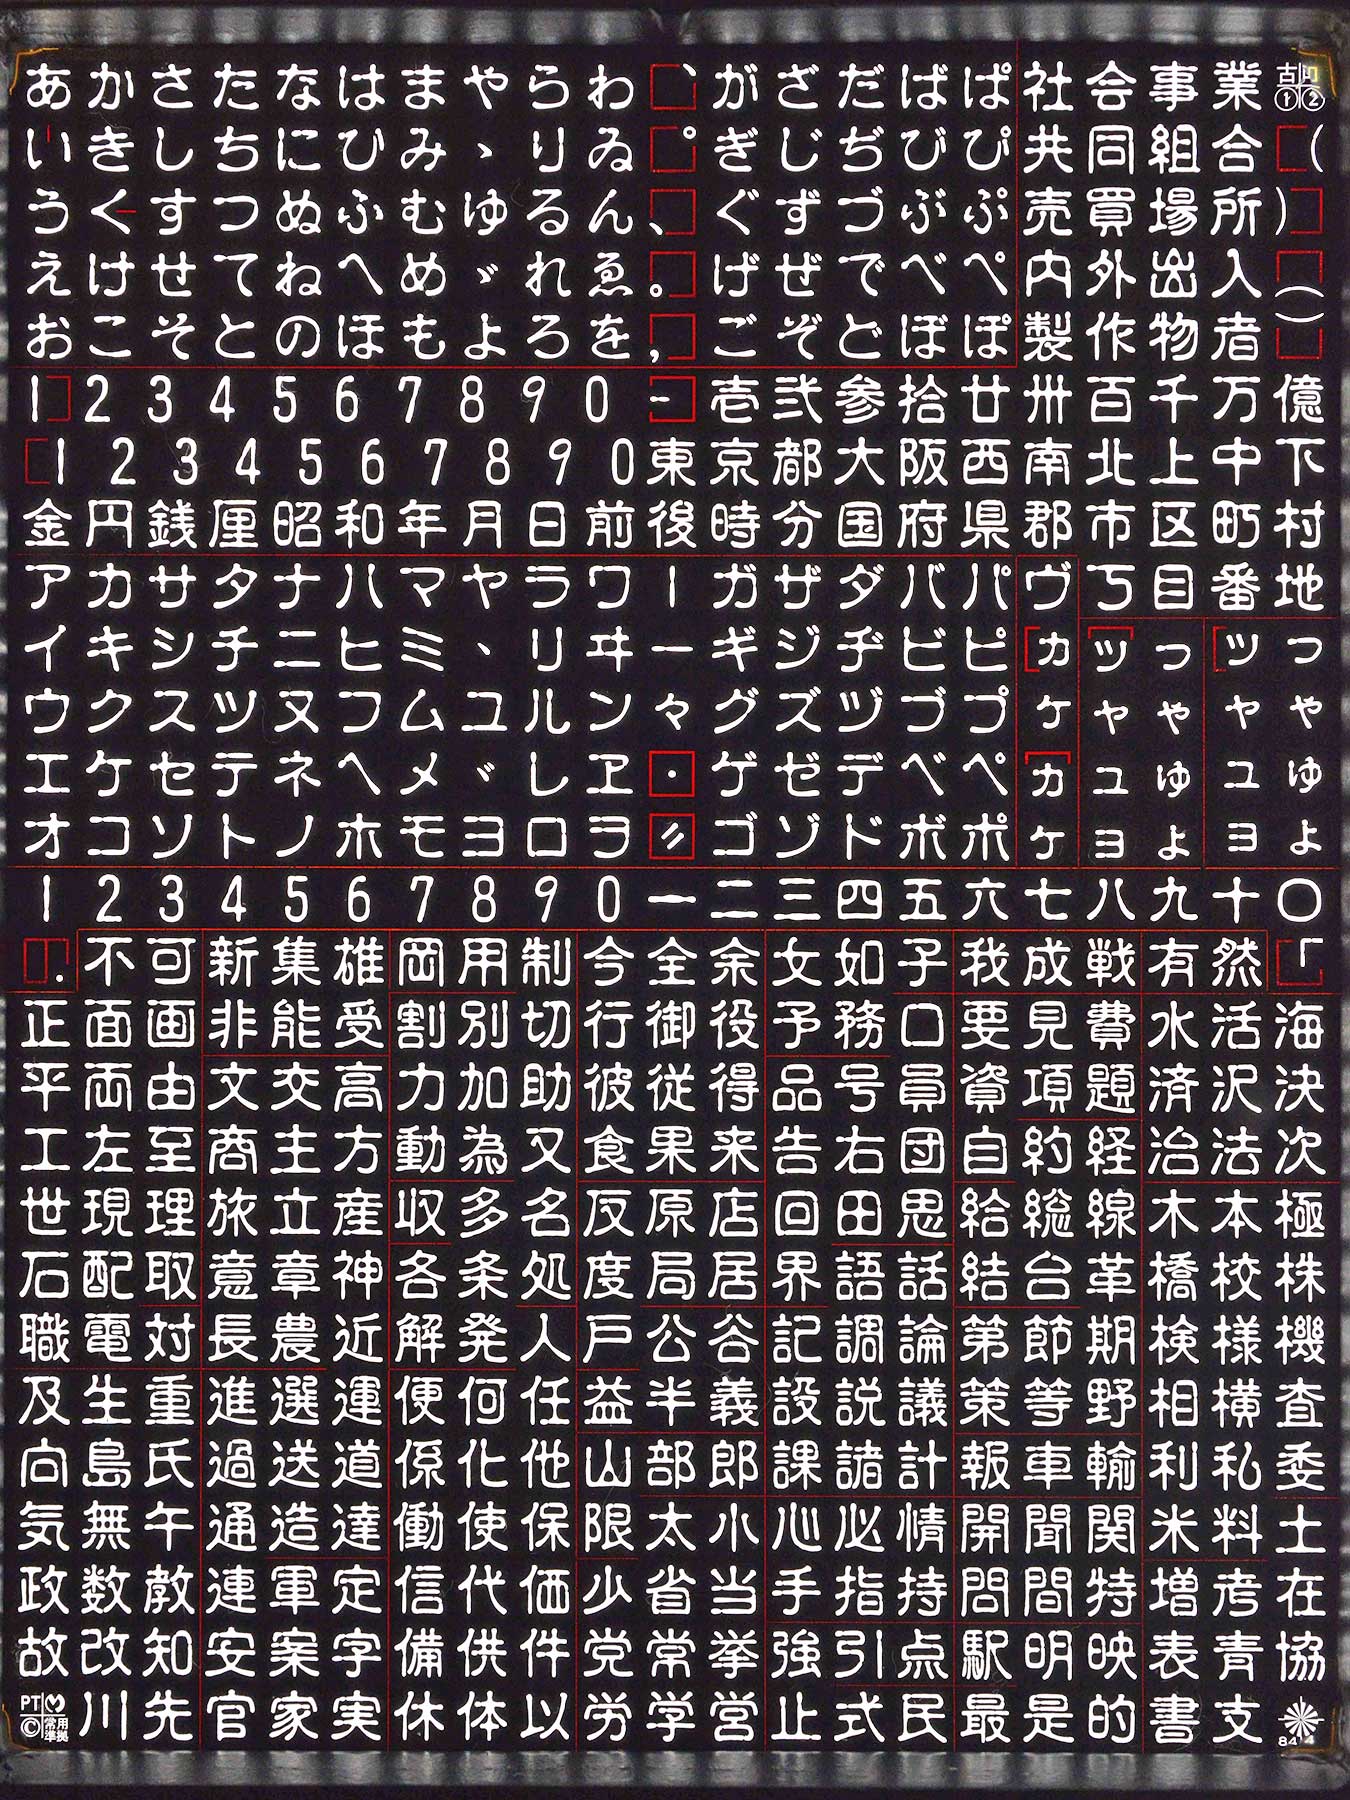 あかさたなはまやらわ、がざだばぱ社会事業古印①②
いきしちにひみゝりゐ。ぎじぢびぴ共同組合（
うくすつぬふむゆるん、ぐずづぶぷ売買場所）
えけせてねへめゞれゑ。げぜでべぺ内外出入（
おこそとのほもよろを，ごぞどぼぽ製作物者）
1234567890-壱弐参拾廿卅百千万億
1234567890東京都大阪西南北上中下
金円銭厘昭和年月日前後時分国府県郡市区町村
アカサタナハマヤラワーガザダバパヴ丁目番地
イキシチニヒミヽリヰーギジヂビピヵッっッっ
ウクスツヌフムユルン々グズヅブプヶャゃャゃ
エケセテネヘメヾレヱ・ゲゼデベペヵュゅュゅ
オコソトノホモヨロヲ〃ゴゾドボポヶョょョょ
1234567890一二三四五六七八九十〇
.不可新集雄岡用制今全余女如子我成戦有然「
正面画非能受割別切行御役予務口要見費水活海
平両由文交高力加助彼従得品号員資項題済沢決
工左至商主方動為又食果来告右団自約経治法次
世現理旅立産収多名反原店回田思給総線木本極
石配取意章神各条処度局居界語話結台革橋校株
職電対長農近解発人戸公谷記調論第節期検様機
及生重進選運便何任益半義設説議策等野相横査
向島氏過送道係化他山部郎課諸計報車輸利私委
気無午通造達働使保限太小心必情開聞関米料土
政数教連軍定信代価少省当手指持問間特増考在
故改知安案字備供件党常挙強引点駅明映表青協
PT©常用準拠川先官家実休体以労学営止式民最是的書支8414